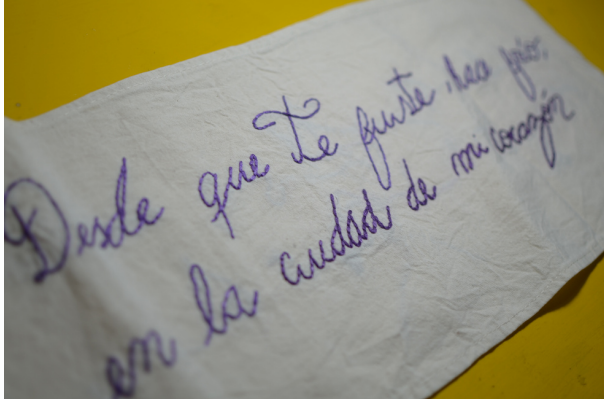 Desde que Te fuiste, hace frío,
en la ciudad de mi corazón